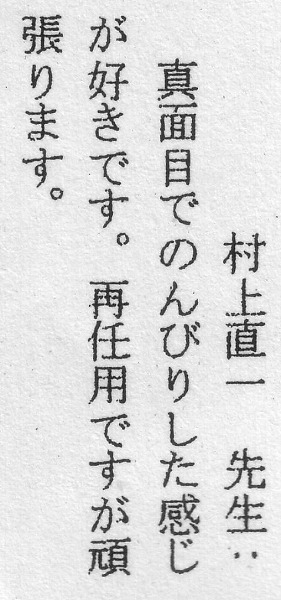 村上直一　先生：
真面目でのんびりした感じ
が好きです。再任用ですが頑
張ります。